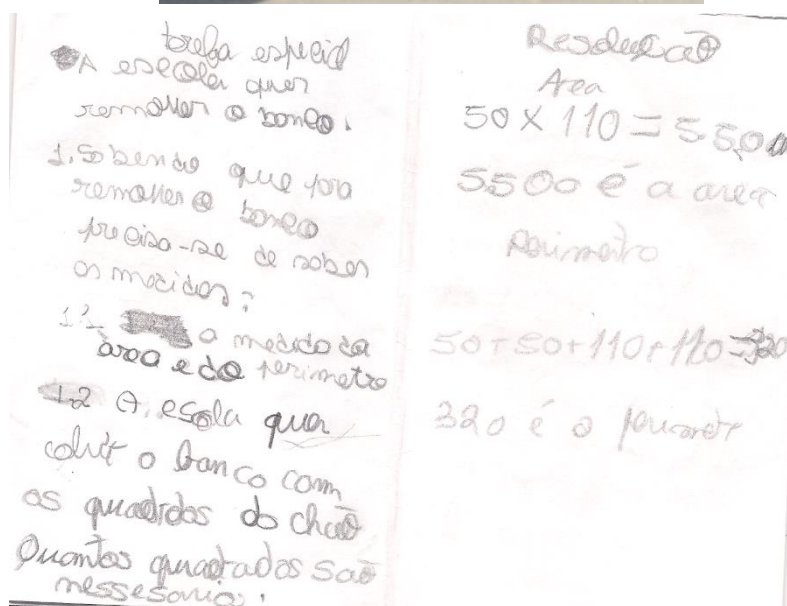 tarefa especial
A escola quer
remover o banco.
1. Sabendo que para
remover o banco
precisa-se de saber
as medidas:
1.1 a medida da
área e do perimetro
1.2 A escola quer
cobrir o banco com
os quadrados do chão
Quantos quadrados são
nessesarios.
Resolução
Area
50 X 110 = 5500
5500 é a area
Perimetro
50+50+110+110=320
320 é o perimetro